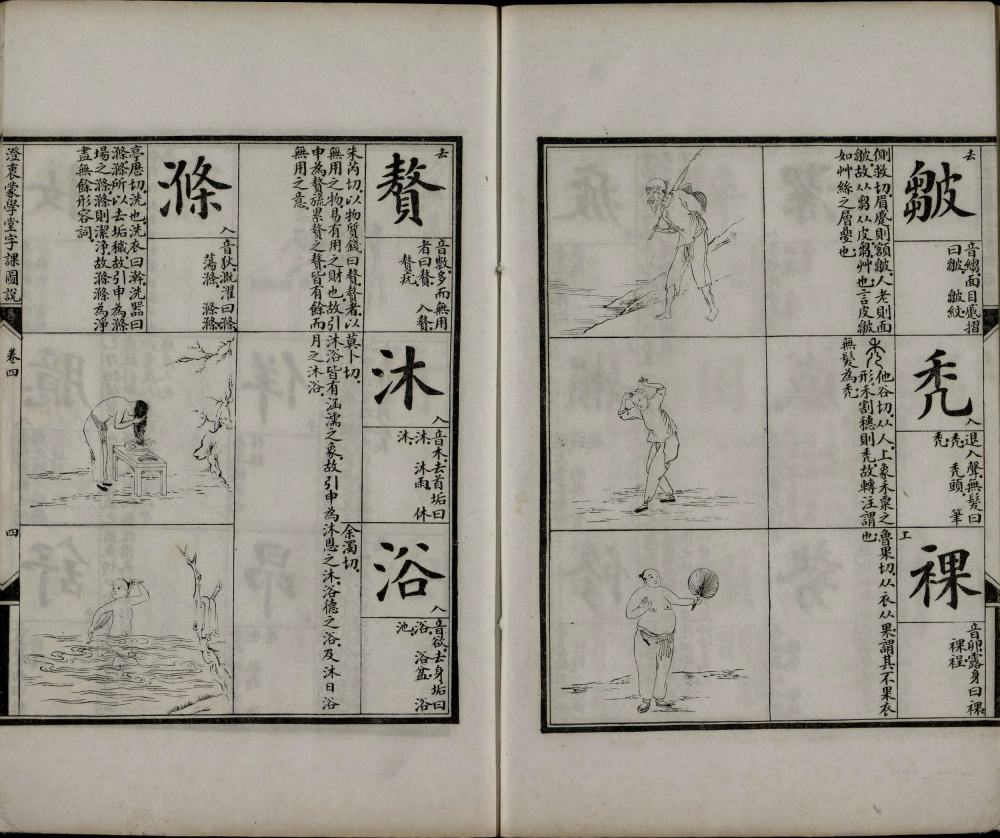 去
皺
音縐面目蹙摺
曰皺　皺紋
側救切眉蹙則額皺人老則面
皺故从芻从皮芻艸也言皮皺
如艸絲之層壘也
禿
入
退入聲無髮曰
禿　禿頭　筆
禿
他谷切从人上象禾粟之
形禾割穗則禿故轉注謂
無髮為禿
裸
上
音卵露身曰裸
裸裎
魯果切从衣从果謂其不果衣
也
去
贅
音綴多而無用
者曰贅　入贅
贅疣
朱芮切以物質錢曰贅贅者以
無用之物易有用之財也故引
申為贅旒累贅之贅皆有餘而
無用之意
沐
入
音木去首垢曰
沐　沐雨　休
沐
莫卜切
沐浴皆有涵濡之象故引申為沐恩之沐浴德之浴及沐日浴
月之沐浴
浴
入
音欲去身垢曰
浴　浴盆　浴
池
余濁切
滌
入
音狄溉濯曰滌
蕩滌　滌滌
亭歷切洗也洗衣曰澣洗器曰
滌滌所以去垢穢故引申為滌
場之滌滌則潔淨故滌滌為淨
盡無餘形容詞
澄衷蒙學堂字課圖說
卷四
四